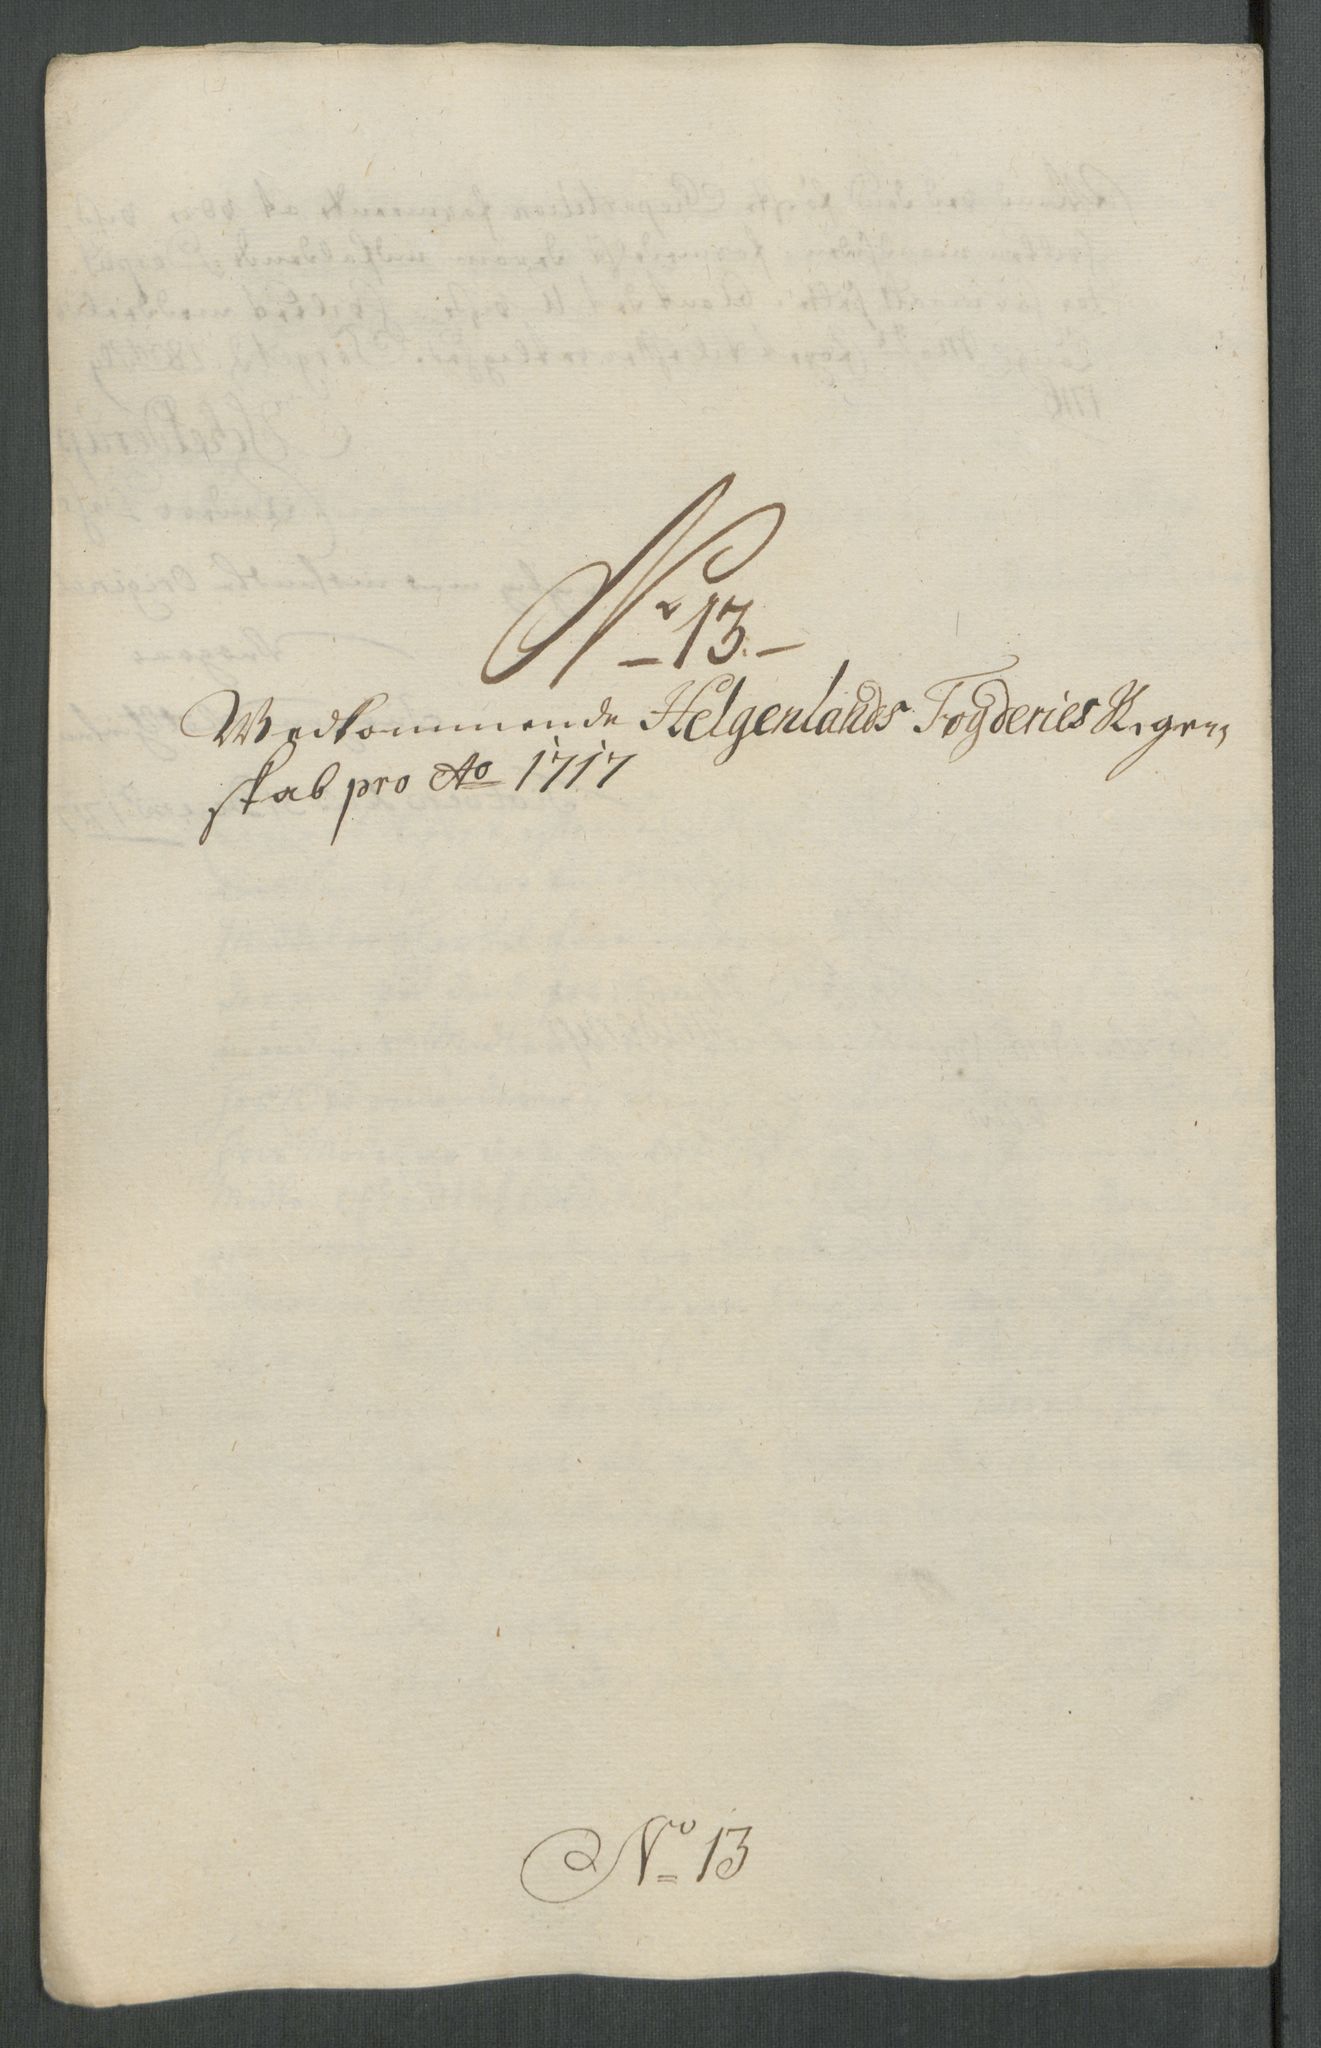 No 13.
Wedkommende Helgenlands Fogderies Regen,
skab pro Ao 1717
No 13